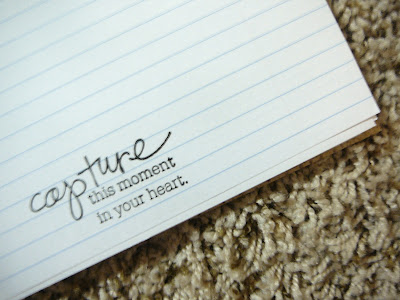 capture
this moment
in your heart.